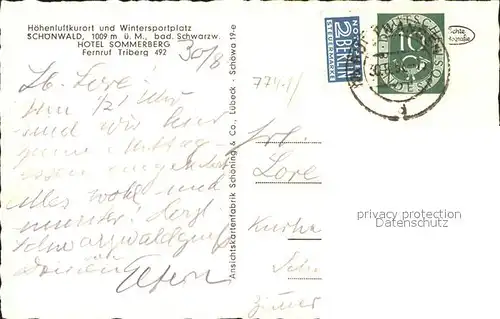 Höhenluftkurort und Wintersportplatz
SCHÖNWALD, 1009 m ü. M., bad. Schwarzw.
HOTEL SOMMERBERG
Fernruf Triberg 492
30/8
Lb. Lore!
Um 1/21 Uhr
sind wir hier
zum Mittag-
essen eingekehrt
Alles wohl und
munter! Herzl.
Schwarzwaldgruß
Eltern
Ansichtskartenfabrik Schöning & Co., Lübeck · Schöwa 19-e
774-1/
NOTOPFER
2 BERLIN
STEUERMARKE
DEUTSCHE
10
BUNDESPOST
Echte
Frl.
Lore
privacy protection
Datenschutz
Kurha
Sch
Zimmer